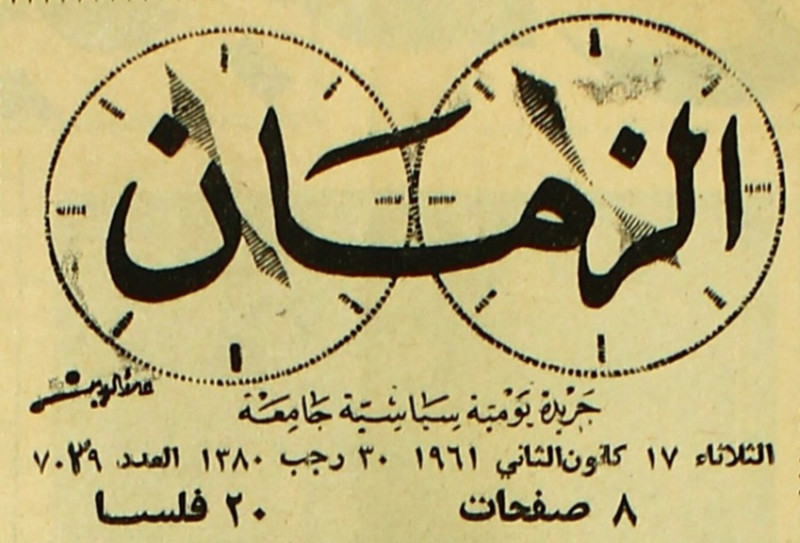 الزمان
جريدة يومية سياسية جامعة
الثلاثاء ١٧ كانون الثاني ١٩٦١ ٣٠ رجب ١٣٨٠ العدد
٨ صفحات ٢٠ فلسا